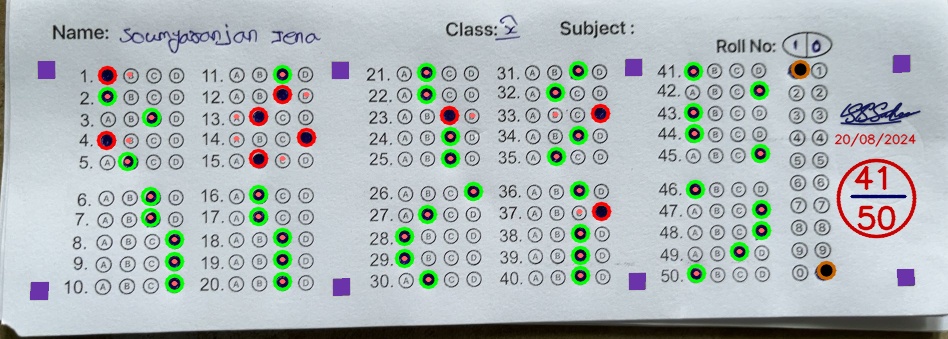 Name: Soumyaranjan Jena
Class: X
Subject :
Roll No: 1 0
1. B C D
2. B C D
3. A B D
4. B C D
5. A C D
6. A B D
7. A B D
8. A B C
9. A B C
10. A B C
11. A B D
12. A B D
13. A C D
14. A B C
15. A C D
16. A C D
17. A C D
18. A B D
19. A B D
20. A B D
21. A C D
22. A C D
23. A B D
24. A B D
25. A B D
26. A B C
27. A C D
28. B C D
29. B C D
30. A C D
31. A B D
32. A C D
33. A B C
34. A B D
35. A C D
36. A B D
37. A B C
38. A B D
39. A B D
40. A B D
41. B C D
42. A B C
43. B C D
44. B C D
45. A B C
46. B C D
47. A B C
48. A B C
49. A B D
50. B C D
1
2 2
3 3
4 4
5 5
6 6
7 7
8 8
9 9
0
20/08/2024
41
50